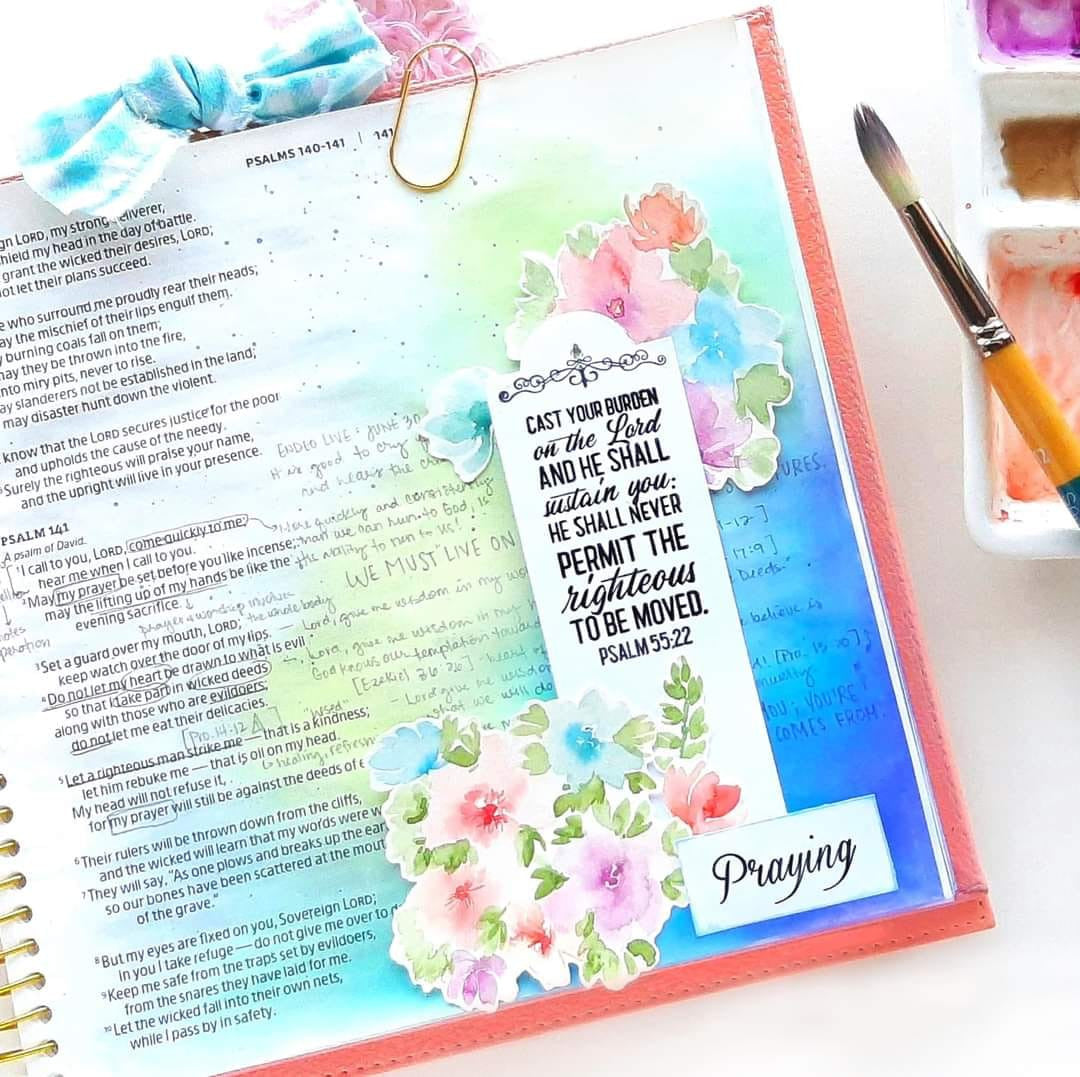 PSALMS 140-141 | 141
gn LORD, my strong deliverer,
hield my head in the day of battle.
grant the wicked their desires, LORD;
ot let their plans succeed.
e who surround me proudly rear their heads;
ay the mischief of their lips engulf them.
y burning coals fall on them;
nay they be thrown into the fire,
nto miry pits, never to rise.
ay slanderers not be established in the land;
may disaster hunt down the violent.
know that the LORD secures justice for the poor
and upholds the cause of the needy.
Surely the righteous will praise your name,
and the upright will live in your presence.
ENDED LIVE: JUNE 30
It is good to cry
and hears the
PSALM 141
A psalm of David.
¹I call to you, LORD, come quickly to me;
hear me when I call to you.
²May my prayer be set before you like incense;
may the lifting up of my hands be like the
evening sacrifice.
More quickly and consistently
than we can run to God, is
the ability to run to us!
WE MUST LIVE ON
prayer & worship involves
the whole body
notes
³Set a guard over my mouth, LORD;
keep watch over the door of my lips.
⁴Do not let my heart be drawn to what is evil
so that I take part in wicked deeds
along with those who are evildoers;
do not let me eat their delicacies.
Lord, give me wisdom in my
Lord, give me wisdom in my
God knows our temptation toward
[Ezekiel 36:26] heart of
Lord give me wisdom
that we will do
[Pro. 14:12]
"used"
healing, refresh
⁵Let a righteous man strike me — that is a kindness;
let him rebuke me — that is oil on my head.
My head will not refuse it,
for my prayer will still be against the deeds of e
⁶Their rulers will be thrown down from the cliffs,
and the wicked will learn that my words were w
⁷They will say, "As one plows and breaks up the ear
so our bones have been scattered at the mout
of the grave."
⁸But my eyes are fixed on you, Sovereign LORD;
in you I take refuge — do not give me over to d
⁹Keep me safe from the traps set by evildoers,
from the snares they have laid for me.
¹⁰Let the wicked fall into their own nets,
while I pass by in safety.
CAST YOUR BURDEN
on the Lord
AND HE SHALL
sustain you:
HE SHALL NEVER
PERMIT THE
righteous
TO BE MOVED.
PSALM 55:22
-12]
17:9]
Deeds.
believe is
[Pro. 15:10];
YOU; YOU'RE
COMES FROM.
Praying